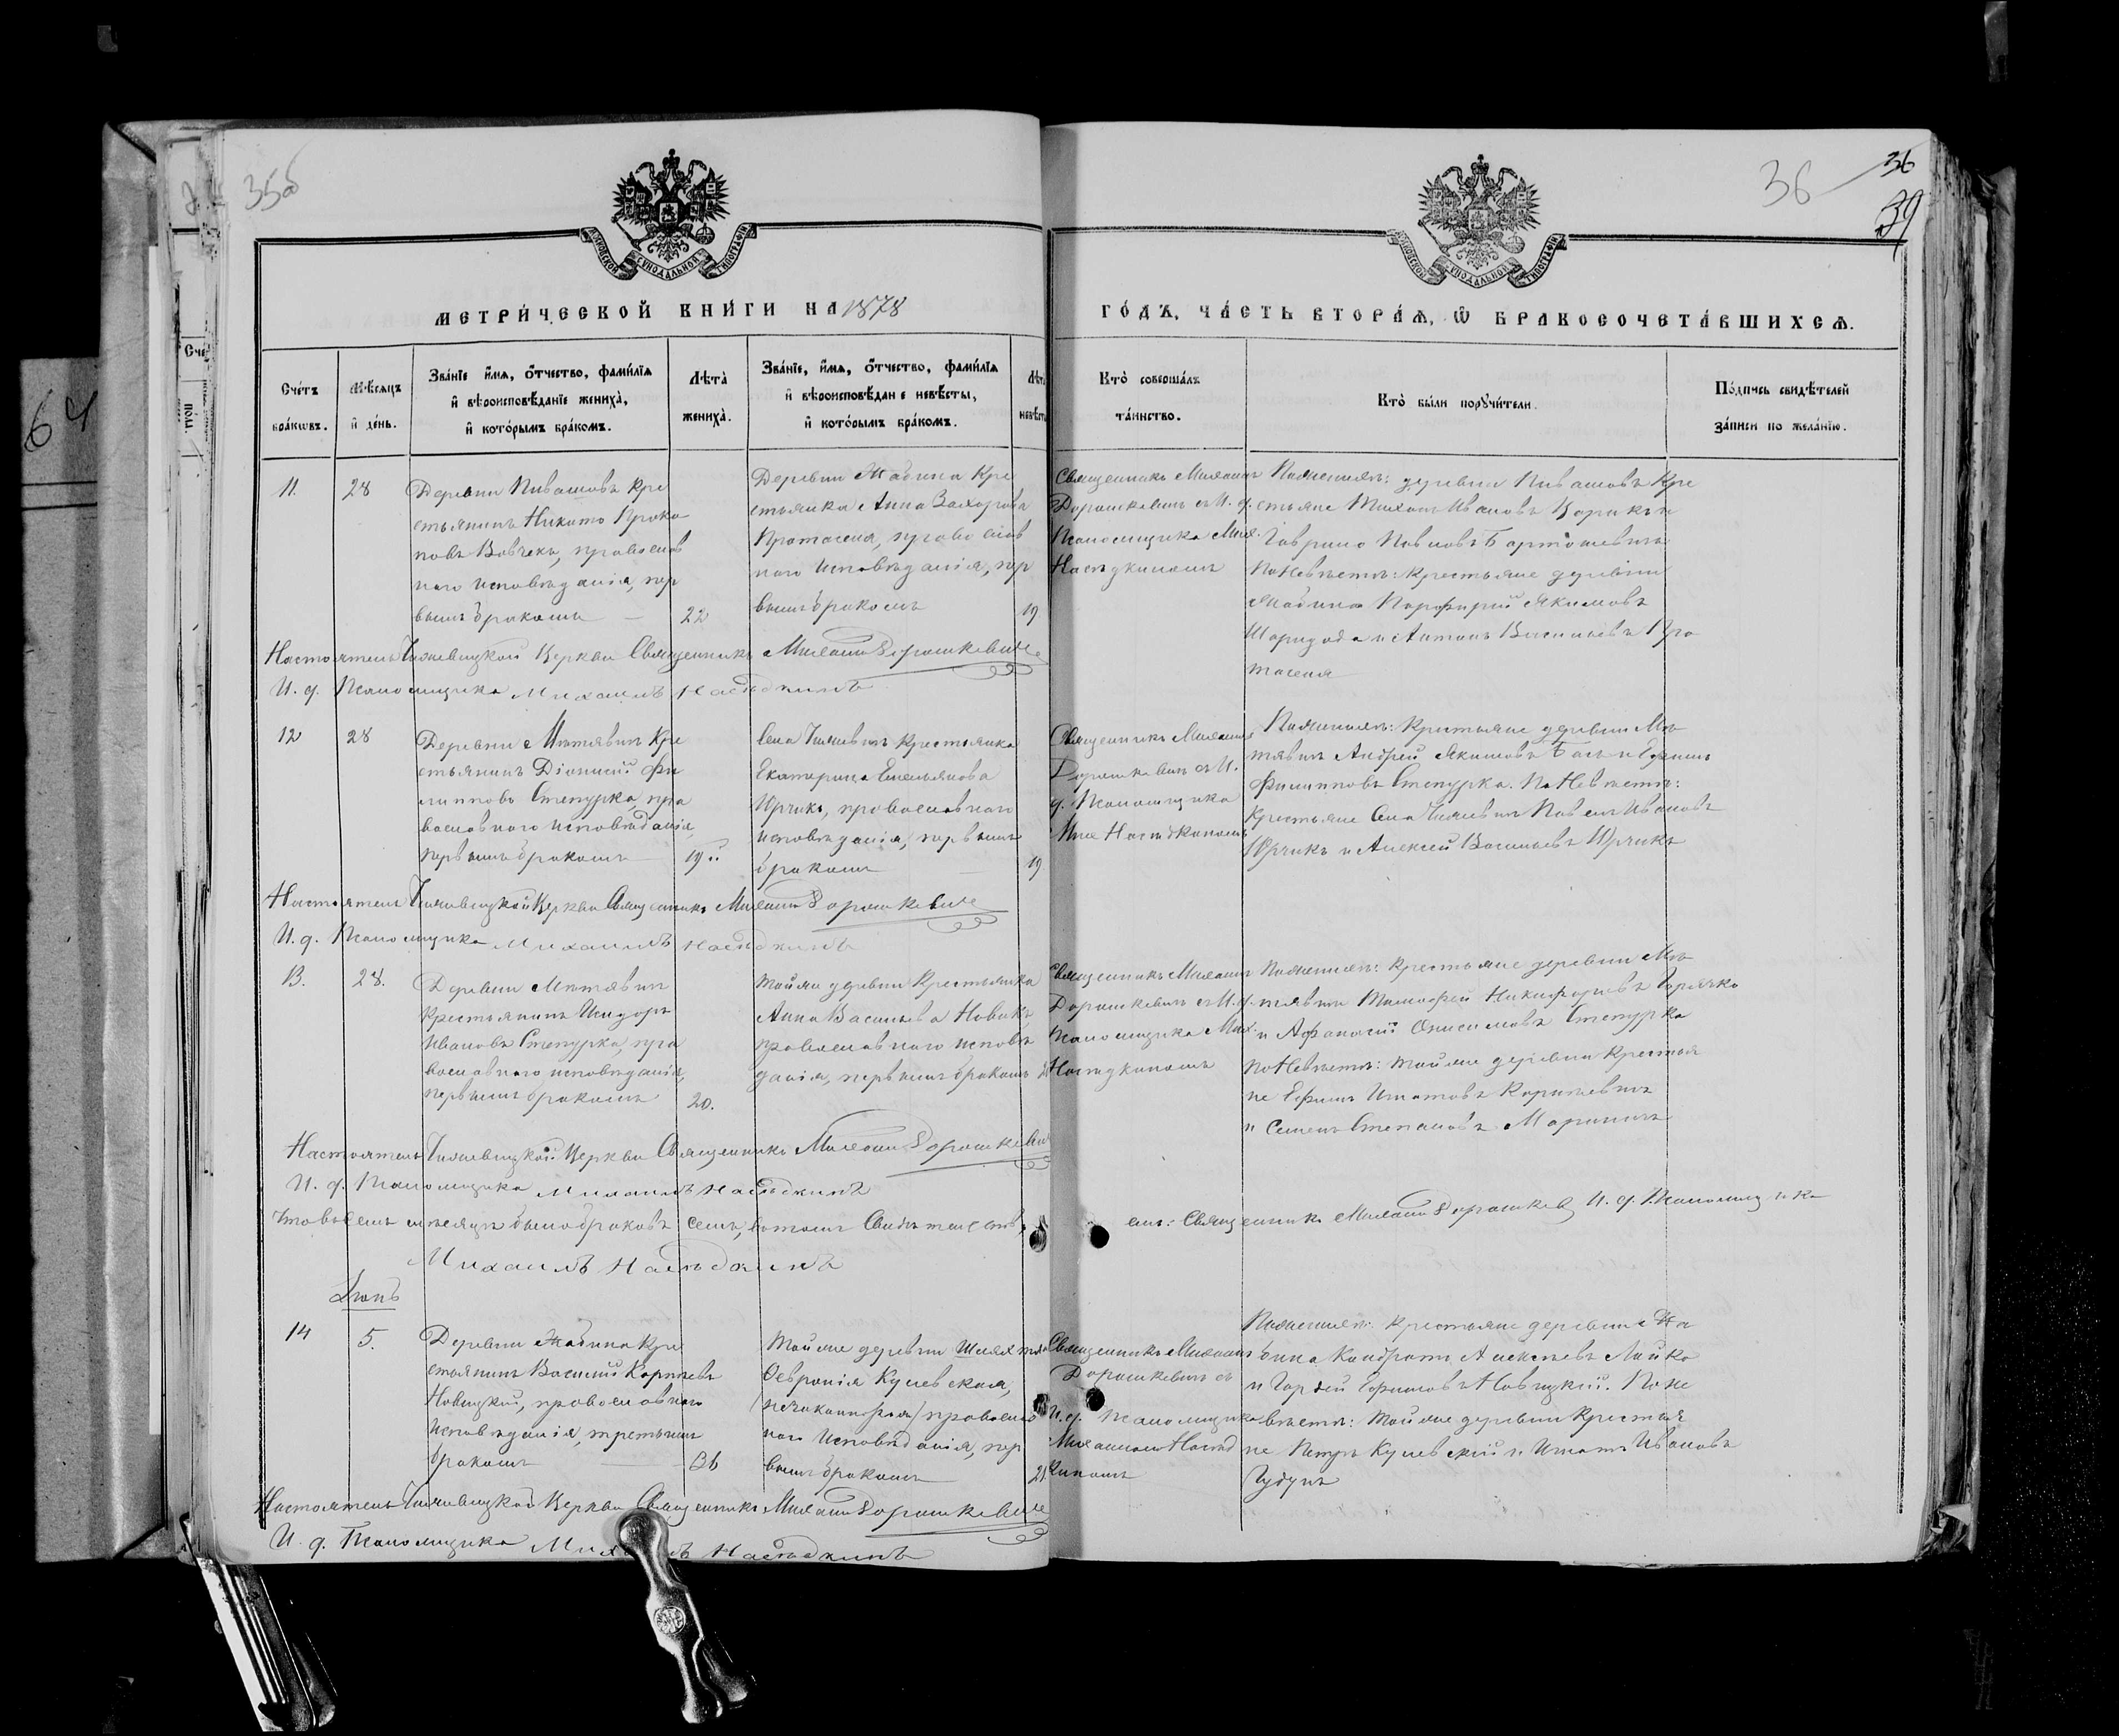 35об
36
36
39
64
МОСКОВСКОЙ СѴНОДАЛЬНОЙ ТИПОГРАФІИ
МОСКОВСКОЙ СѴНОДАЛЬНОЙ ТИПОГРАФІИ
МЕТРИ́ЧЕСКОЙ КНИ́ГИ НА 1878
ГО́ДЪ, ЧА́СТЬ ВТОРА́Ѧ, Ѽ БРАКОСОЧЕТА́ВШИХСѦ.
Сче́тъ бра́кѡвъ.
Мѣ́сѧцъ и҆ де́нь.
Зва́нїе и҆́мѧ, ѻ҆́тчество, фами́лїѧ и҆ вѣроисповѣ́данїе жениха̀, и҆ кото́рымъ бра́комъ.
Лѣ́та̀ жениха̀.
Зва́нїе, и҆́мѧ, ѻ҆́тчество, фами́лїѧ и҆ вѣроисповѣ́дан е невѣ́сты, и҆ кото́рымъ бра́комъ.
Лѣ́та невѣ́ст
Кто̀ соверша́лъ та́инство.
Кто̀ бы́ли порꙋчи́тели.
По́дпись свидѣ́телей за́писи по жела́нїю.
11.
28
Деревни Пивашовъ Кре
стьянинъ Никита Проко
повъ Вовчекъ, православ
наго исповѣданія, пер
вымъ бракомъ
22
Деревни Жабина Кре
стьянка Анна Захарова
Протасеня, православ
наго исповѣданія, пер
вымъ бракомъ
19
Священникъ Михаилъ
Дорошкевичъ съ И. д.
Псаломщика Мих.
Насѣдкиномъ
По женихѣ: деревни Пивашовъ Кре
стьяне Михаилъ Ивановъ
Гаврило Павловъ Бартошевичъ
По Невѣстѣ: Крестьяне деревни
Жабина Порфирій Якимовъ
и Антонъ Васильевъ Про
тасеня
Настоятель Церкви Священникъ Михаилъ Дорошкевичъ
И. д. Псаломщика Михаилъ Насѣдкинъ
12
28
Деревни Мѣтявичъ Кре
стьянинъ Діонисій Фи
липповъ Степурка, пра
вославнаго исповѣданія,
первымъ бракомъ
19
Села Крестьянка
Екатерина Емельянова
Юрчикъ, православнаго
исповѣданія, первымъ
бракомъ
19
Священникъ Михаилъ
Дорошкевичъ съ И.
д. Псаломщика
Мих Насѣдкиномъ
По женихѣ: Крестьяне деревни Мѣ
тявичъ Андрей Якимовъ и Ефимъ
Филипповъ Степурка. По Невѣстѣ:
Крестьяне Села Павелъ Ивановъ
Юрчикъ и Алексей Васильевъ Юрчикъ
Настоятель Церкви Священникъ Михаилъ Дорошкевичъ
И. д. Псаломщика Михаилъ Насѣдкинъ
13.
28.
Деревни Мѣтявичъ
Крестьянинъ Исидоръ
Ивановъ Степурка, пра
вославнаго исповѣданія,
первымъ бракомъ
20.
Той же деревни Крестьянка
Анна Васильева Новикъ
православнаго исповѣ
данія, первымъ бракомъ
Священникъ Михаилъ
Дорошкевичъ съ И. д.
Псаломщика Мих.
Насѣдкиномъ
По женихѣ: Крестьяне деревни Мѣ
тявичъ Тимофей Никифоровъ Горячко
и Афанасій Онисимовъ Степурка
По Невѣстѣ: той же деревни Крестья
не Ефимъ Игнатовъ
и Семенъ Степановъ
Настоятель Церкви Священникъ Михаилъ Дорошкевич
И. д. Псаломщика Михаилъ Насѣдкинъ
Что въ семъ мѣсяцѣ было браковъ семь, въ томъ Свидѣтельству
емъ: Священникъ Михаилъ Дорошкев И. д. Псаломщика
Михаилъ Насѣдкинъ
14
5.
Деревни Жабина Кре
стьянинъ Василій
Новицкій, православнаго
исповѣданія, третьимъ
бракомъ
Той же деревни
Февронія Кулевская,
православ
наго Исповѣданія, пер
вымъ бракомъ
21
Священникъ Михаилъ
Дорошкевичъ съ
И. д. Псаломщика
Михаиломъ Насѣд
киномъ
По женихѣ: Крестьяне деревни Жа
бина Кондратъ Алексѣевъ Лайко
и Гордей Ефимовъ Новицкій. По не
вѣстѣ: той же деревни Крестья
не Петръ Кулевскій и Игнатъ Ивановъ
Настоятель Церкви Священникъ Михаилъ Дорошкевичъ
И. д. Псаломщика Насѣдкинъ